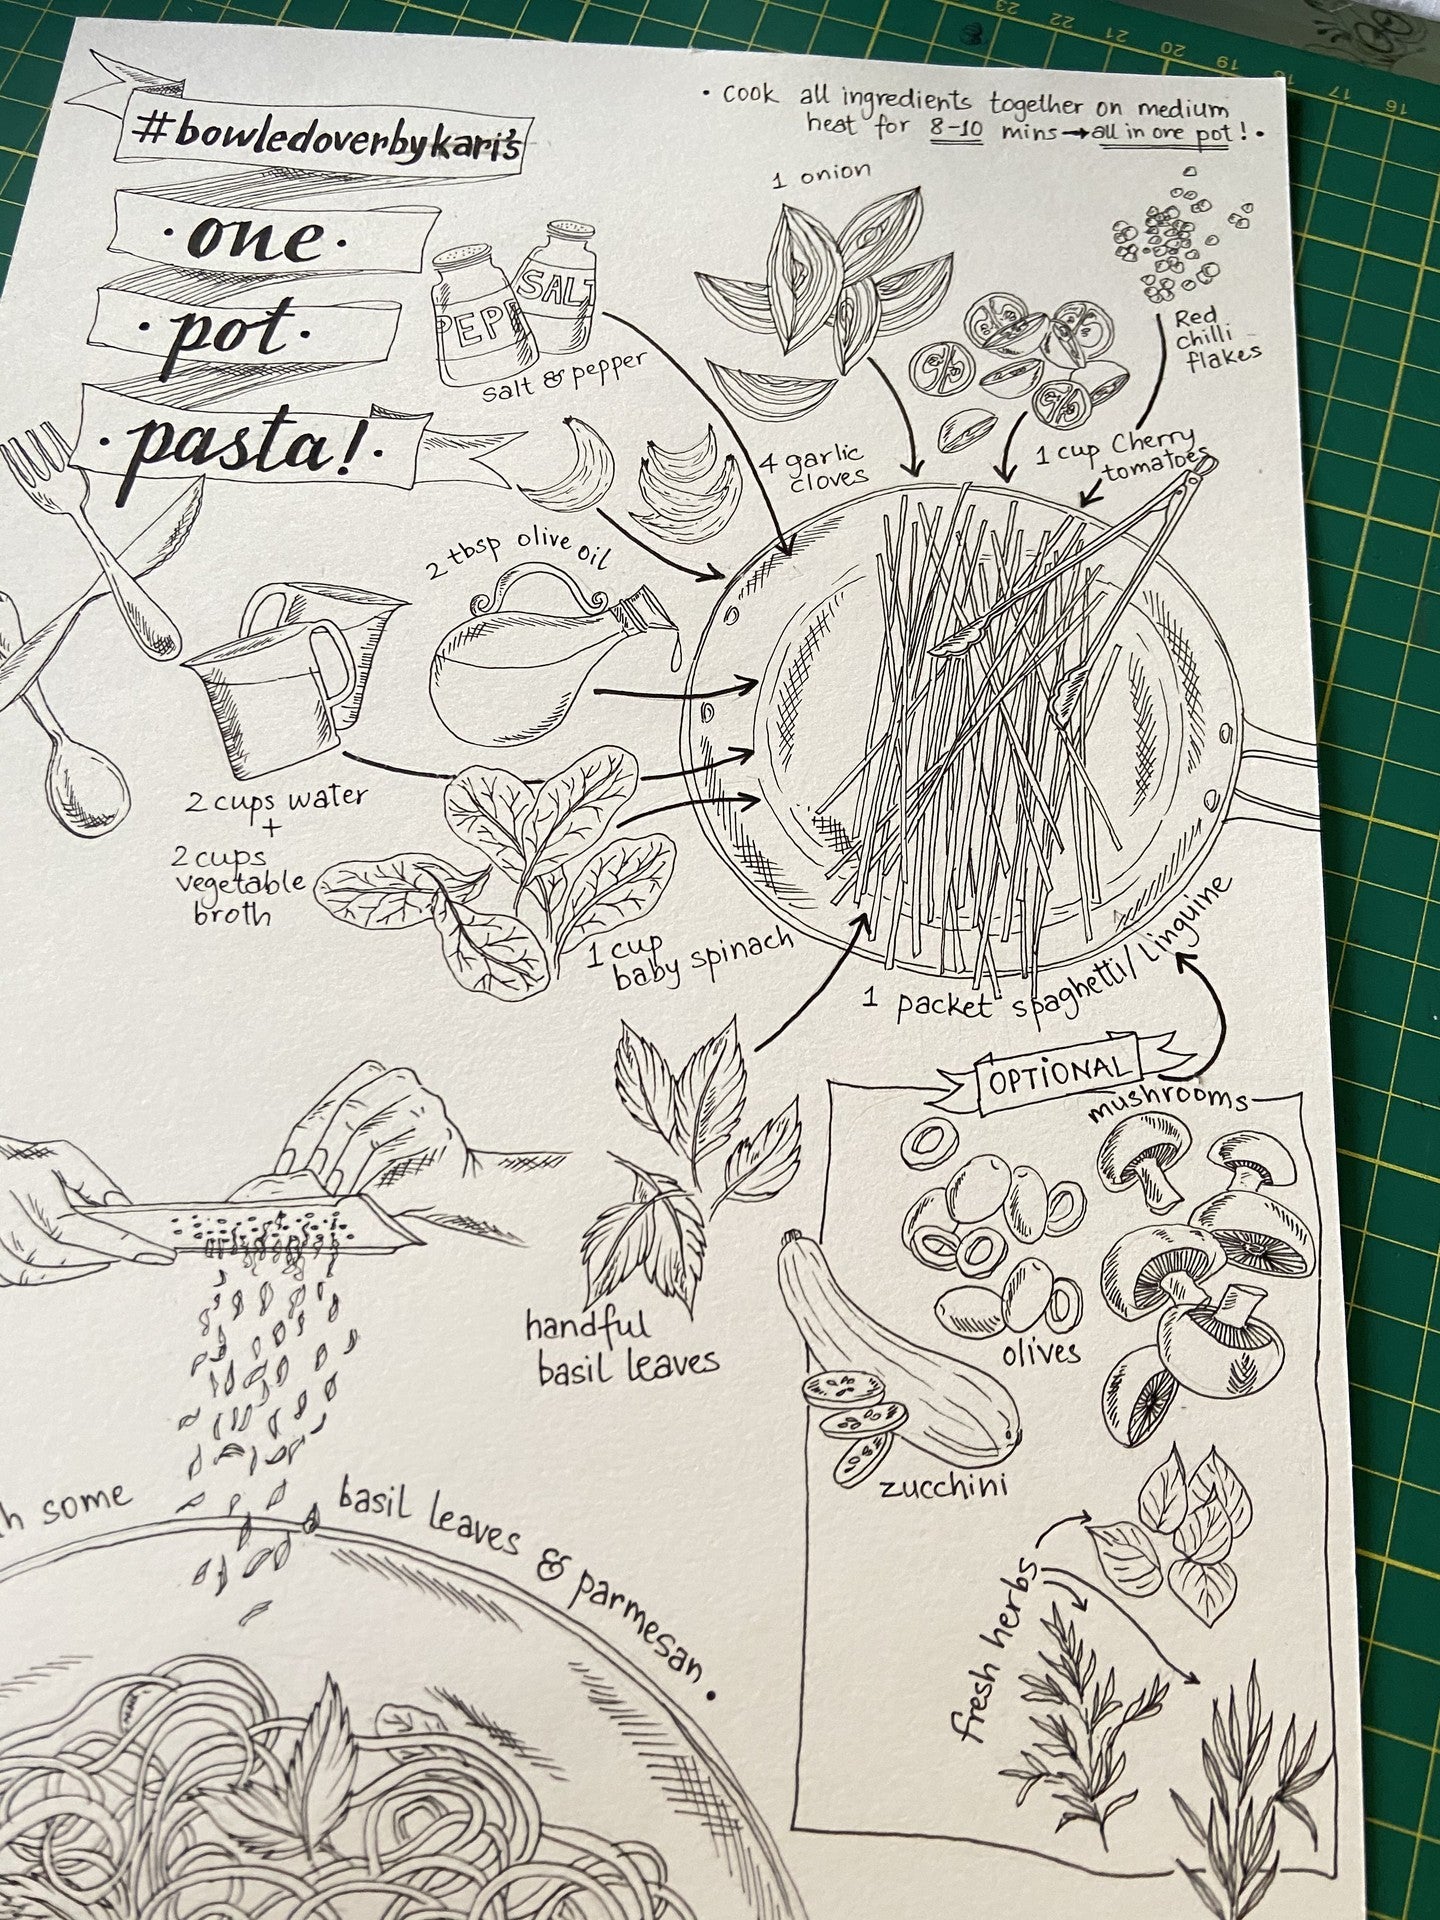 #bowledoverbykari's
·one·
·pot·
·pasta!·
· Cook all ingredients together on medium
heat for 8-10 mins→all in one pot!·
1 onion
Red
chilli
flakes
SALT
PEP
salt & pepper
4 garlic
cloves
1 cup Cherry
tomatoes
2 tbsp olive oil
2 cups water
+
2 cups
vegetable
broth
1 cup
baby spinach
1 packet spaghetti/linguine
OPTIONAL
mushrooms
handful
basil leaves
olives
zucchini
fresh herbs
some basil leaves & parmesan.
23 22 21 20 19 17 16